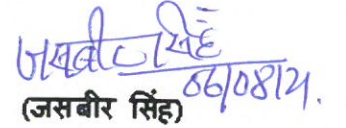 जसबीर सिंह
06/08/21.
(जसबीर सिंह)